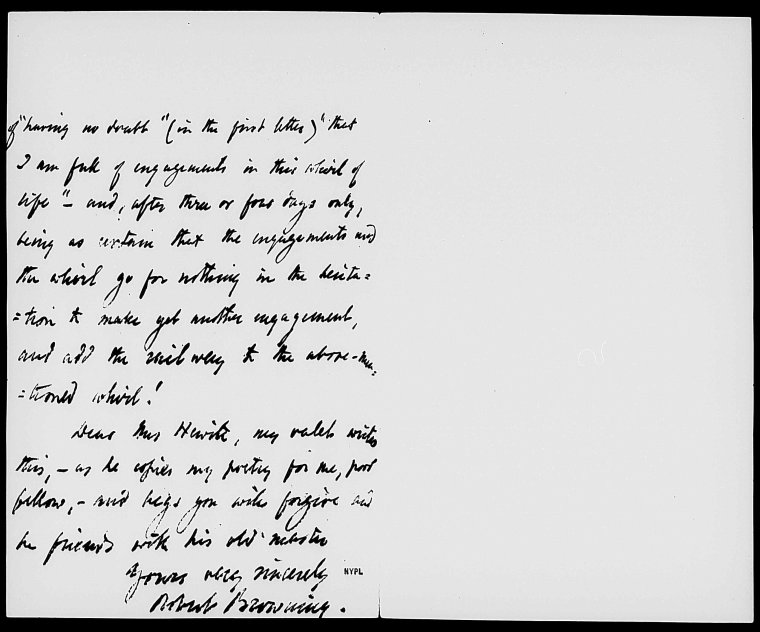 of "having no doubt" (in the first letter) "that
I am full of engagements in this whirl of
life" - and, after three or four days only,
being as certain that the engagements and
the whirl go for nothing in the hesita=
=tion to make yet another engagement,
and add the railway to the above-men=
=tioned whirl!
Dear Mrs , my valet writes
this, - as he copies my poetry for me, poor
fellow, - and begs you will forgive and
be friends with his old master
Yours very sincerely
Robert Browning.
NYPL